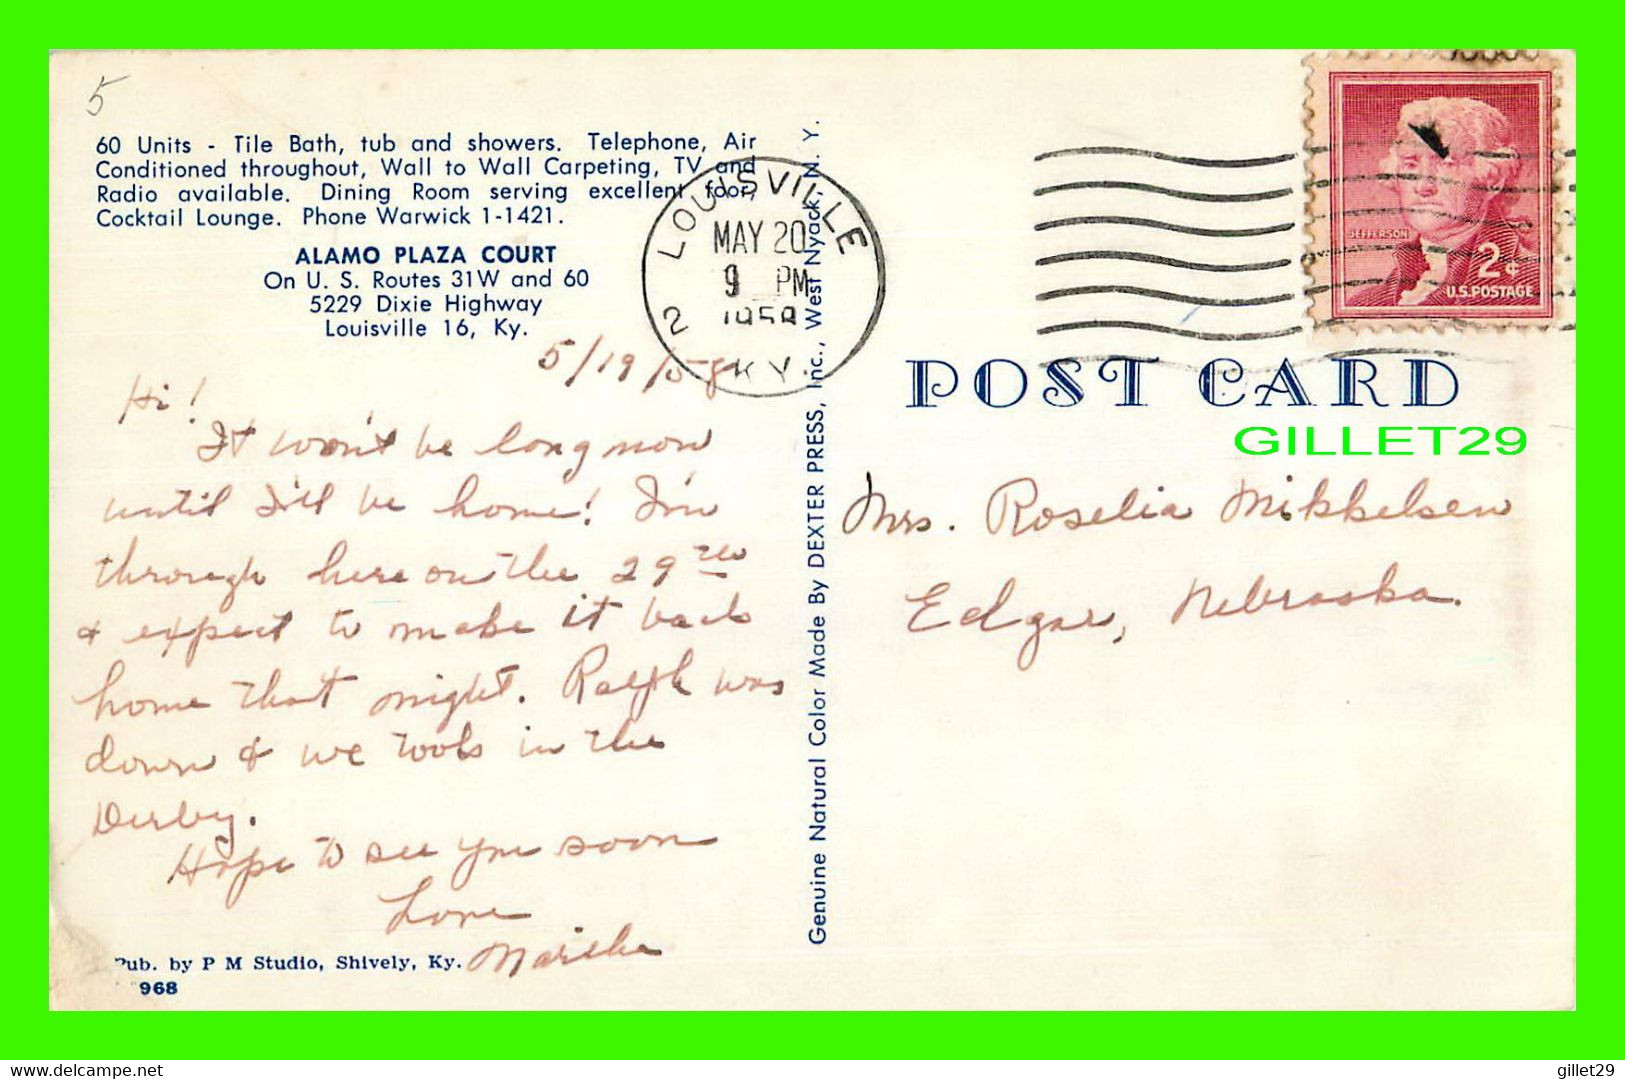 5
60 Units - Tile Bath, tub and showers. Telephone, Air
Conditioned throughout, Wall to Wall Carpeting, TV and
Radio available. Dining Room serving excellent foor,
Cocktail Lounge. Phone Warwick 1-1421.
ALAMO PLAZA COURT
On U. S. Routes 31W and 60
5229 Dixie Highway
Louisville 16, Ky.
5/19/58
Hi!
It won't be long now
until I'll be home! I'm
through here on the 29
& expect to make it back
home that night. Ralph was
down & we took in the
Derby.
Hope to see you soon
Love
Martha
Pub. by P M Studio, Shively, Ky.
968
Genuine Natural Color Made By DEXTER PRESS, Inc., West Nyack, N. Y.
LOUISVILLE
MAY 20
9 PM
1958
2 KY.
JEFFERSON
2¢
U.S. POSTAGE
POST CARD
GILLET29
Mrs. Roselia Mikkelsen
Edgar, Nebraska.
www.delcampe.net
gillet29